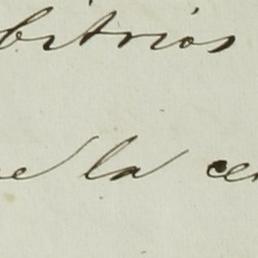 bitrios
e la ce